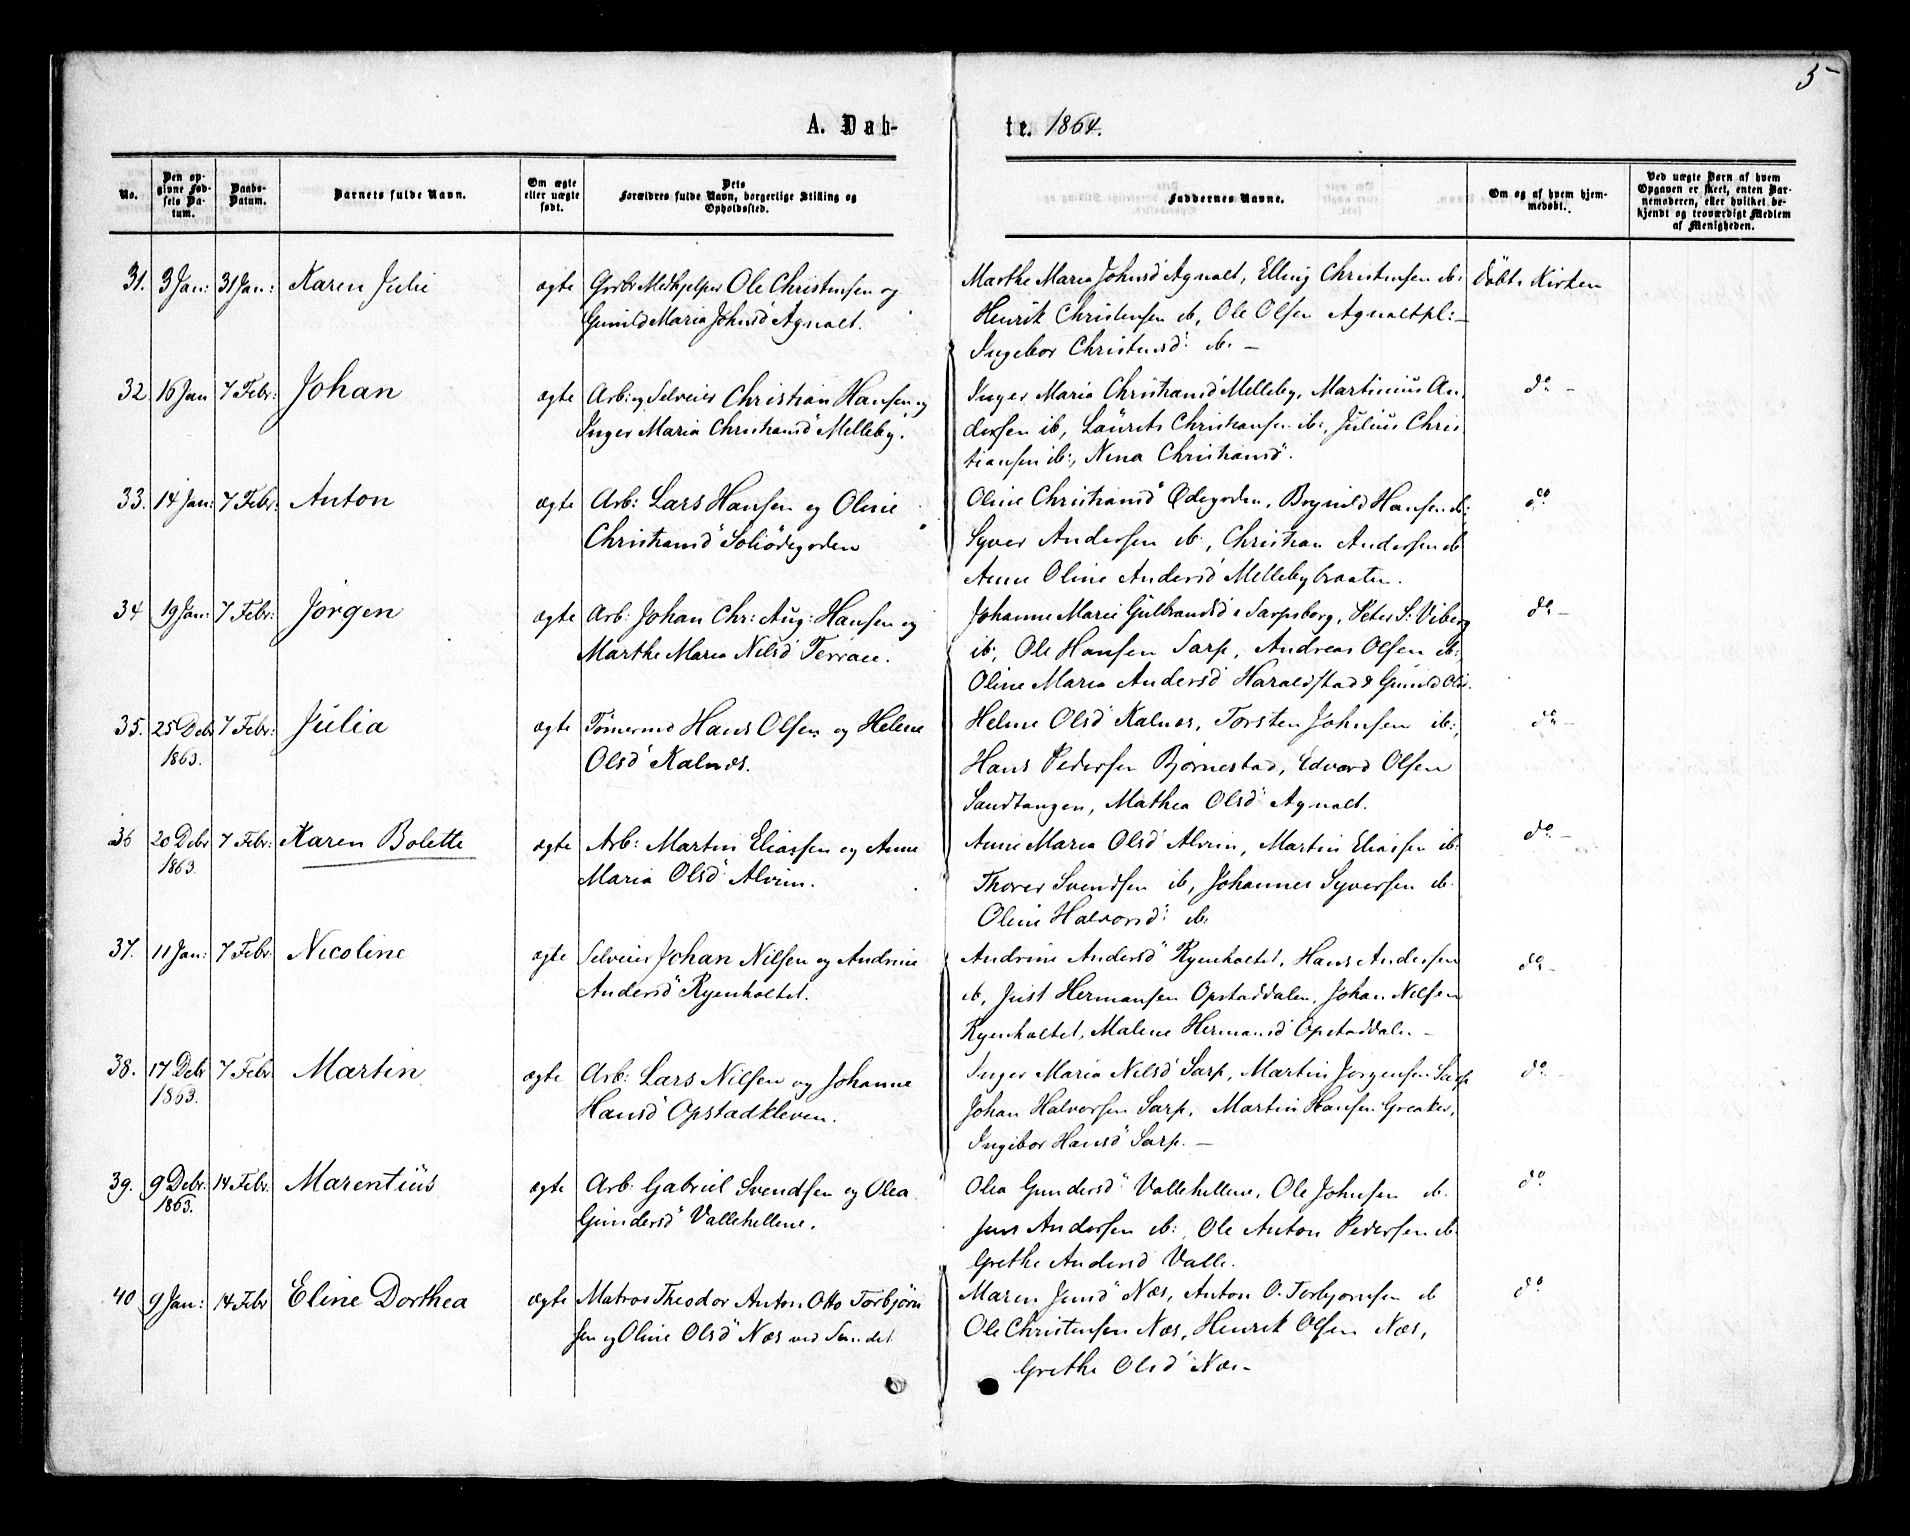 5
A. Døb-
te. 1864.
No.
Den op-
givne Fød-
sels Da-
tum.
Daabs-
Datum.
Barnets fulde Navn.
Om ægte
eller uægte
født.
Dets
Forældres fulde Navn, borgerlige Stilling og
Opholdssted.
Faddernes Navne.
Om og af hvem hjem-
medøbt.
Ved uægte Børn af hvem
Opgaven er skeet, enten Bar-
nemoderen, eller hvilket be-
kjendt og troværdigt Medlem
af Menigheden.
31. 3 Jan: 31 Jan: Karen Julie ægte Grbr Medhjelper Ole Christensen og
Gunild Maria Johnsd Agnalt.
Marthe Maria Johnsd Agnalt, Elling Christensen ib: Döbt i Kirken
Henrik Christensen ib, Ole Olsen Agnaltpl: –
Ingebor Christensd: ib. –
32 16 Jan 7 Febr: Johan ægte Arb: og Selveier Christian Hansen og
Inger Maria Christiansd Melleby.
Inger Maria Christiansd Melleby, Martinius An- do –
dersen ib, Laurits Christiansen ib:, Julius Chris
tiansen ib:, Nina Christiansd.
33. 14 Jan: 7 Febr: Anton ægte Arb: Lars Hansen og Oline
Christiansd Soliödegorden
Oline Christiansd Ödegorden, Brynild Hansen ib: do
Syver Andersen ib:, Christian Andersen ib
Anne Oline Andersd Mellebybraaten.
34 19 Jan: 7 Febr: Jörgen ægte Arb: Johan Chr: Aug: Hansen og
Marthe Maria Nilsd Terrace.
Johanne Marie Gulbrandsd Sarpsborg, Peter S. Viberg do –
ib:, Ole Hansen Sarp, Andreas Olsen ib:,
Oline Maria Andersd Haraldstad & Gunild Olsd.
35. 25 Debr 7 Febr: Julia ægte Tömermd Hans Olsen og Helene
1863. Olsd Kalnæs.
Helene Olsd Kalnes, Torsten Johnsen ib:, do –
Hans Pedersen Bjørnestad, Edvard Olsen
Sandtangen, Mathea Olsd Agnalt.
36 20 Debr 7 Febr: Karen Bolette ægte Arb: Martin Eliassen og Anne
1863. Maria Olsd Alvim.
Anne Maria Olsd Alvim, Martin Eliassen ib: do –
Thorer Svendsen ib, Johannes Syversen ib.
Oline Halvorsd: ib.
37. 11 Jan: 7 Febr. Nicoline ægte Selveier Johan Nilsen og Andrine
Andersd Ryenholtet.
Andrine Andersd Ryenholtet, Hans Andersen do –
ib, Just Hermansen Opstaddalen, Johan Nilsen
Ryenholtet, Malene Hermansd Opstaddalen –
38. 17 Debr 7 Febr Martin ægte Arb: Lars Nilsen og Johanne
1863. Hansd Opstadkleven.
Inger Maria Nilsd Sarp, Martin Jörgensen Sarp do –
Johan Halvorsen Sarp, Martin Hansen Greaker,
Ingebor Hansd Sarp. –
39. 9 Debr. 14 Febr. Marentius ægte Arb: Gabriel Svendsen og Olea
1863. Gundersd Vallehellene.
Olea Gundersd Vallehellene, Ole Johnsen ib. do
Jens Andersen ib:, Ole Anton Pedersen ib.
Grethe Andersd Valle.
40 9 Jan: 14 Febr Eline Dorthea ægte Matros Theodor Anton Otto Torbjörn
sen og Oline Olsd Næs ved Sundet
Maren Jensd Næs, Anton O. Torbjornsen ib do
Ole Christensen Næs, Henrik Olsen Næs,
Grethe Olsd Næs –